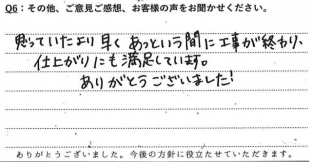 Q6：その他、ご意見ご感想、お客様の声をお聞かせください。
思っていたより早くあっという間に工事が終わり、
仕上がりにも満足しています。
ありがとうございました!
ありがとうございました。今後の方針に役立たせていただきます。